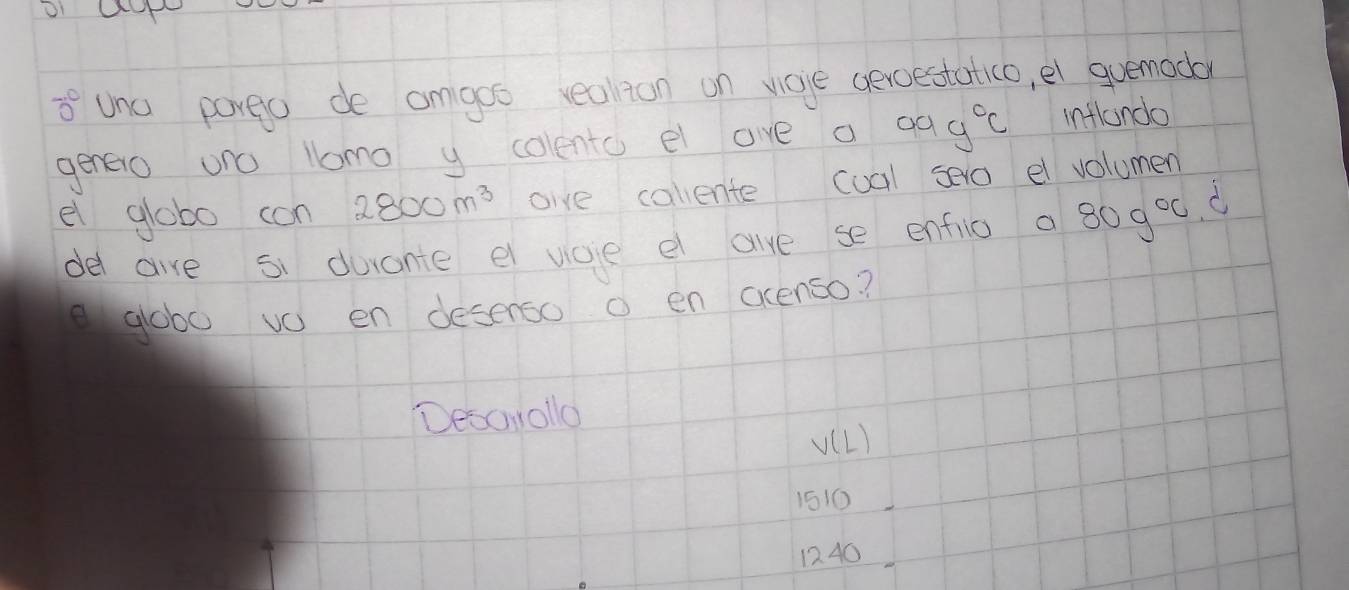 3° Una pareja de amigos realizan un viaje aeroestatico, el quemador
genero una llama y calento el aire a 99 g°C inflando
el globo con 2800m³ aire caliente cual sera el volumen
del aire si durante el viaje el aire se enfria a 80 g°C. ¿
el globo va en desenso o en acenso?
Desarrollo
V(L)
1510
1240